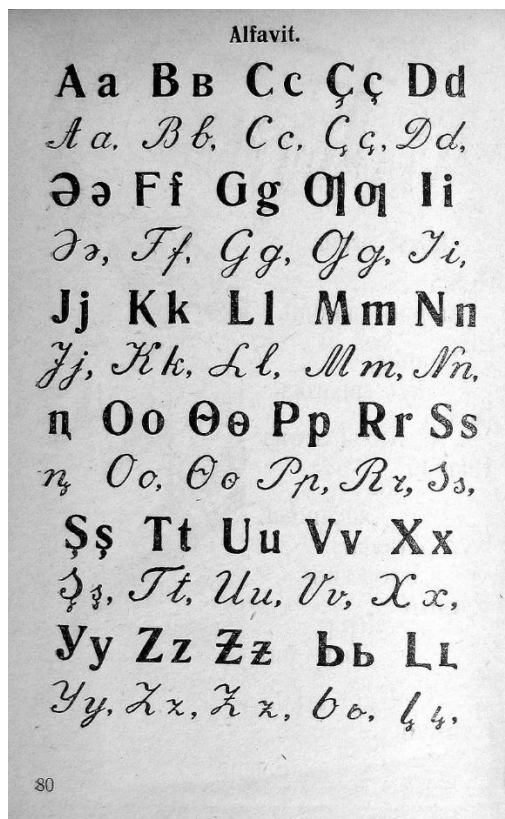 Alfavit.
Aa Bʙ Cc Çç Dd
Aa, Bb, Cc, Çç, Dd,
Əə Ff Gg Ƣƣ Ii
Əə, Ff, Gg, Ƣƣ, Ii,
Jj Kk Ll Mm Nn
Jj, Kk, Ll, Mm, Nn,
ꞑ Oo Ɵɵ Pp Rr Ss
ꞑ Oo, Ɵɵ Pp, Rr, Ss,
Şş Tt Uu Vv Xx
Şş, Tt, Uu, Vv, Xx,
Yy Zz Ƶƶ Ьь Ļļ
Yy, Zz, Ƶƶ, Ьь, Ļļ,
80